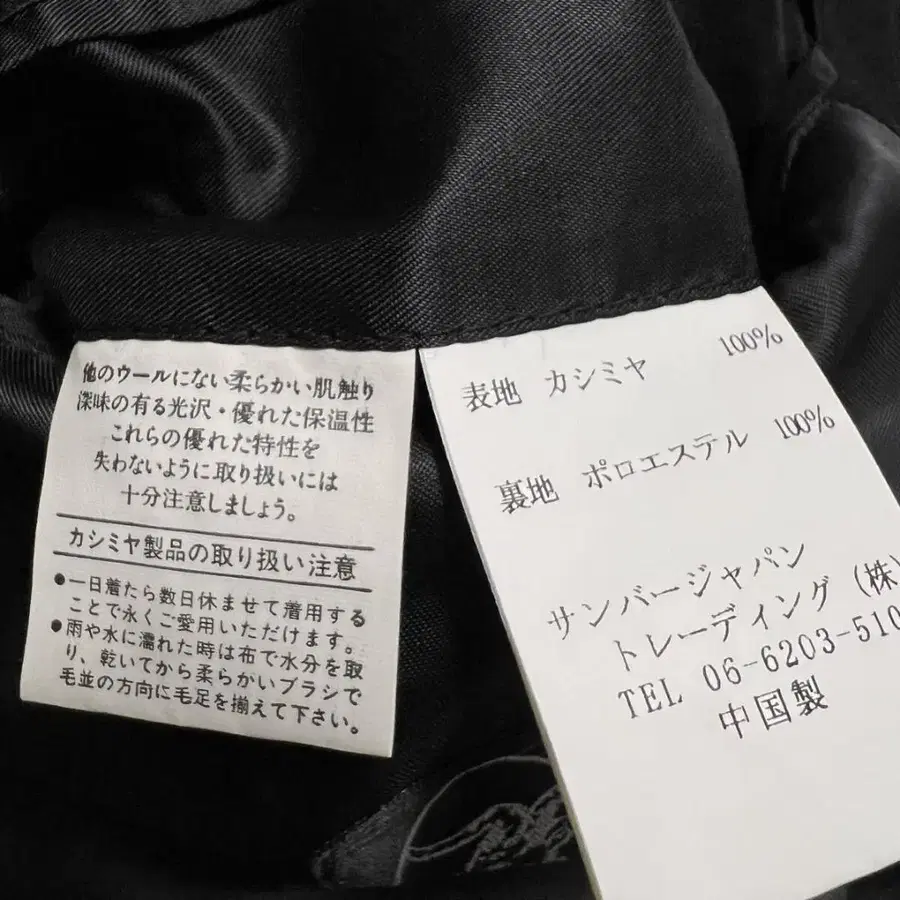 他のウールにない柔らかい肌触り
深味の有る光沢・優れた保温性
これらの優れた特性を
失わないように取り扱いには
十分注意しましょう。
カシミヤ製品の取り扱い注意
●一日着たら数日休ませて着用する
ことで永くご愛用いただけます。
●雨や水に濡れた時は布で水分を取
り、乾いてから柔らかいブラシで
毛並の方向に毛足を揃えて下さい。
表地 カシミヤ 100%
裏地 ポロエステル 100%
サンバージャパン
トレーディング (株)
TEL 06-6203-510
中国製